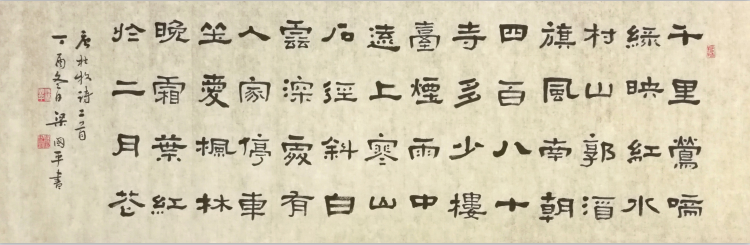 千里鶯啼
綠映紅水
村山郭酒
旗風南朝
四百八十
寺多少樓
臺煙雨中
遠上寒山
石徑斜白
雲深處有
人家停車
坐愛楓林
晚霜葉紅
於二月花
唐杜牧诗二首
丁酉冬日梁國平書